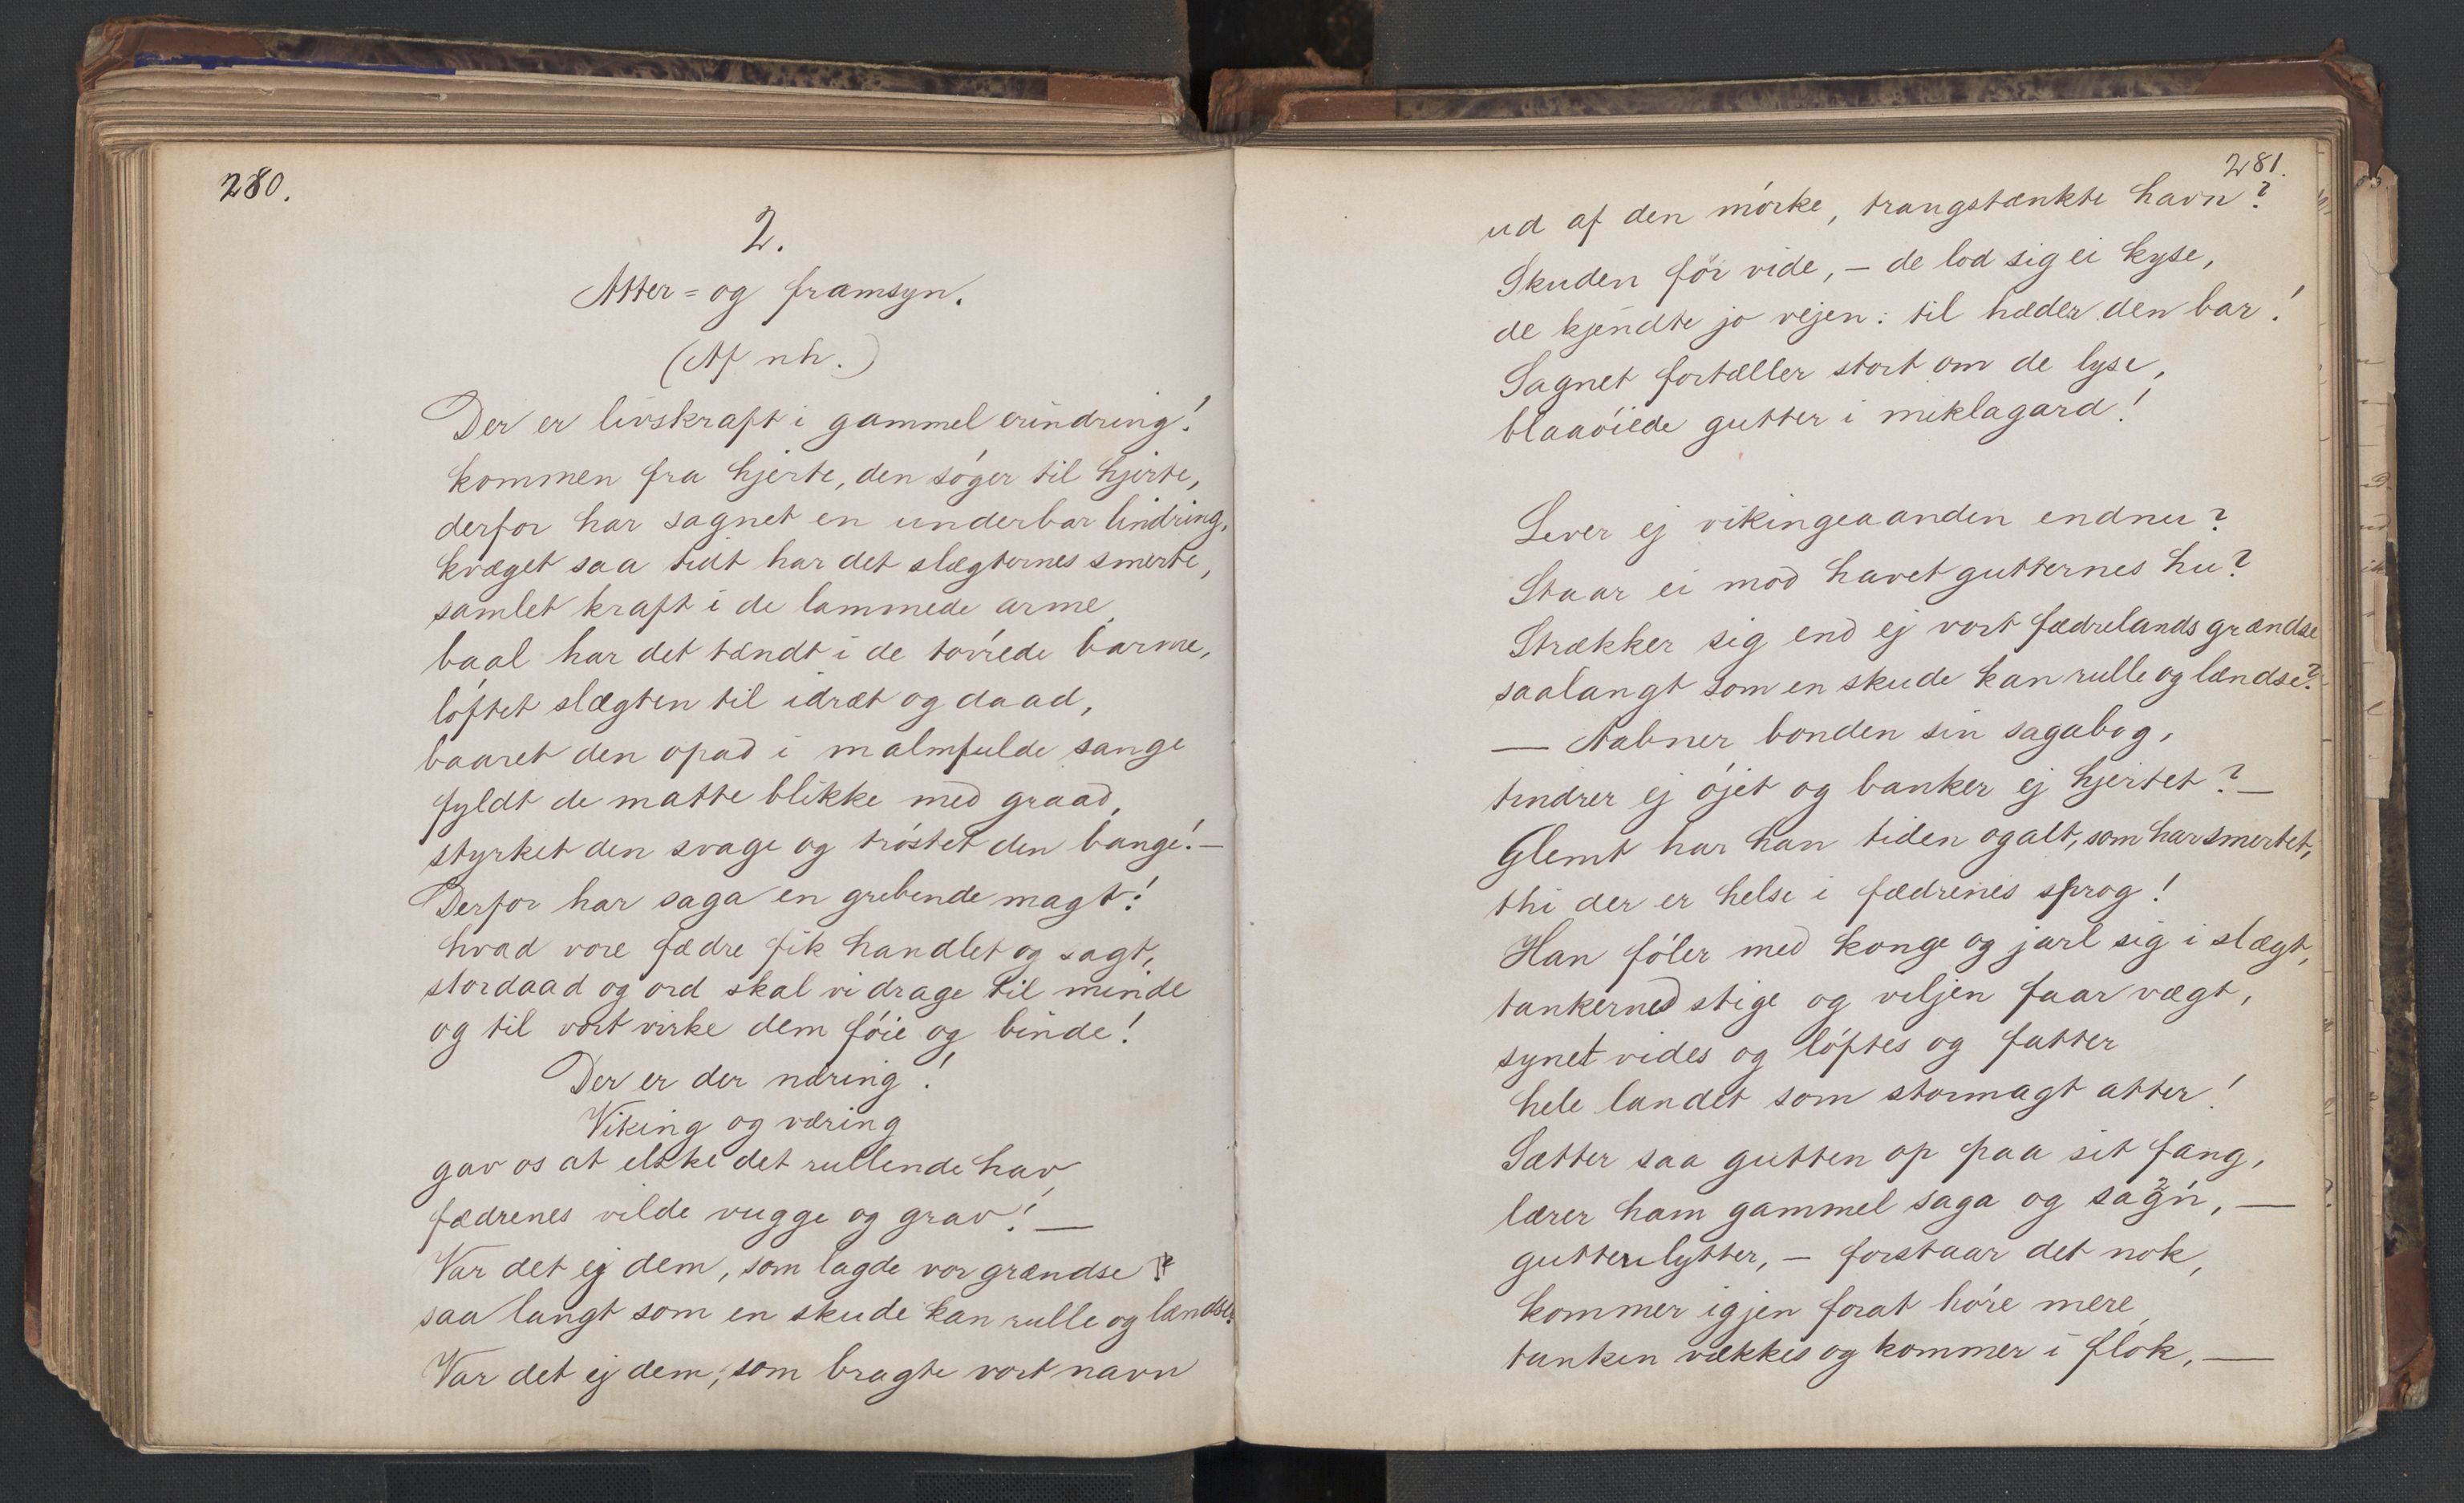 280.
2.
Atter= og framsyn.
(Af nh.)
Der er livskraft i gammel erindring!
kommen fra hjerte, den söger til hjerte,
derfor har sagnet en underbar lindring,
kvæget saa tidt har det slægternes smerte,
samlet kraft i de lammede arme,
baal har det tændt i de tavrede barme,
löftet slægten til idræt og daad,
baaret den opad i malmfulde sange
fyldt de matte blikke med graad,
styrket den svage og tröstet den bange! —
Derfor har saga en gribende magt!
hvad vore fædre fik handlet og sagt,
stordaad og ord skal vi drage til minde
og til vort virke dem föie og binde!
Der er der næring!
Viking og væring
gav os at elske det rullende hav,
fædrenes vilde vugge og grav! —
Var det ej dem, som lagde vor grændse
saa langt som en skude kan rulle og lændse?
Var det ej dem, som bragte vort navn
281.
ud af den mörke, trangstænkte havn?
Skuden för vide, — de lod sig ei kyse,
de kjendte jo vejen: til hæder den bar!
Sagnet fortæller stort om de lyse,
blaaöiede gutter i miklagard!
Lever ej vikingeaanden endnu?
Staar ei mod havet gutternes hu?
Strækker sig end ej vort fædrelands grændse
saalangt som en skude kan rulle og lændse?
— Aabner bonden sin sagabog,
tindrer ej öjet og banker ej hjertet? —
Glemt har han tiden og alt, som har smertet,
thi der er helse i fædrenes sprog!
Han föler med konge og jarl sig i slægt,
tankerne stige og viljen faar vægt,
synet vides og löftes og fatter
hele landet som stormagt atter!
Sætter saa gutten op paa sit fang,
lærer ham gammel saga og sagn, —
gutten lytter, — forstaar det nok,
kommer igjen forat höre mere,
tanken vækkes og kommer i flok, —